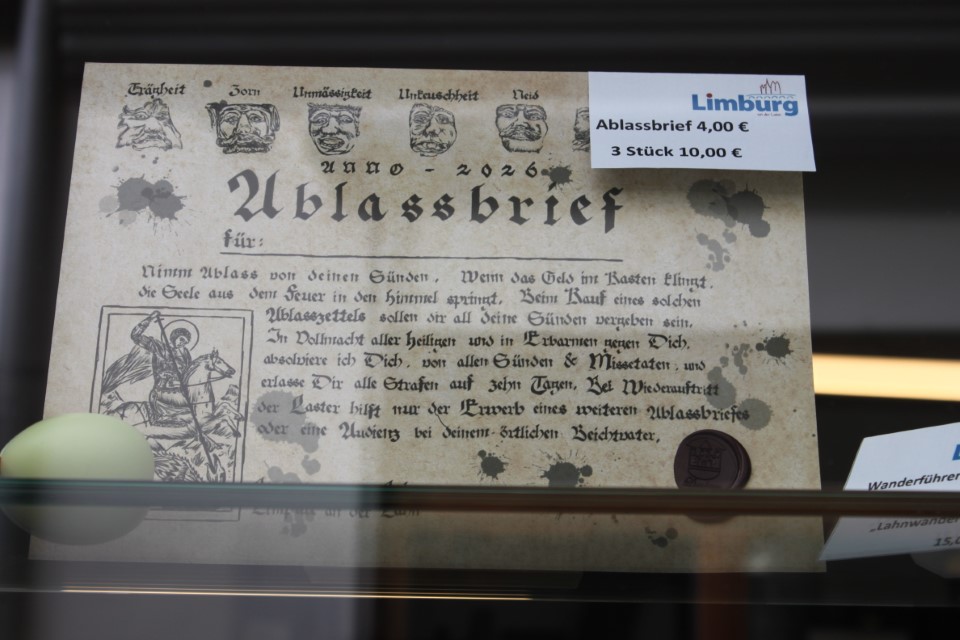 Trägheit Zorn Unmässigkeit Unkeuschheit Neid
Limburg
Ablassbrief 4,00 €
3 Stück 10,00 €
ANNO - 2026
Ablassbrief
für:
Nimm Ablass von deinen Sünden. Wenn das Geld im Kasten klingt,
die Seele aus dem Feuer in den Himmel springt. Beim Kauf eines solchen
Ablasszettels sollen dir all deine Sünden vergeben sein.
In Vollmacht aller Heiligen und in Erbarmen gegen Dich,
absolviere ich Dich, von allen Sünden & Missetaten, und
erlasse Dir alle Strafen auf zehn Tagen. Bei Wiederauftritt
der Laster hilft nur der Erwerb eines weiteren Ablassbriefes
oder eine Audienz bei deinem örtlichen Beichtvater.
an der Lahn
Wanderführer
„Lahnwander
15,0